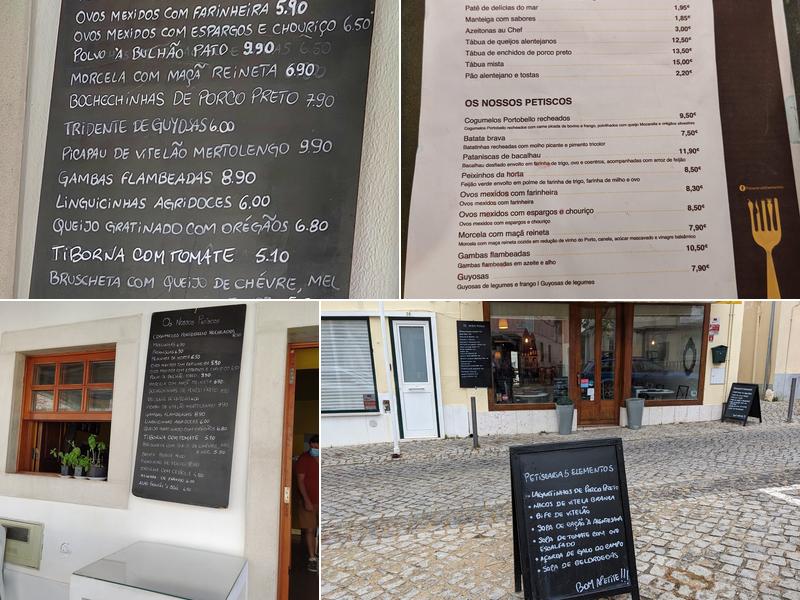 OVOS MEXIDOS COM FARINHEIRA 5.90
OVOS MEXIDOS COM ESPARGOS E CHOURIÇO 6.50
POLVO À BULHÃO PATO 9.90
MORCELA COM MAÇÃ REINETA 6.90
BOCHECHINHAS DE PORCO PRETO 7.90
TRIDENTE DE GUYOSAS 6.00
PICAPAU DE VITELÃO MERTOLENGO 9.90
GAMBAS FLAMBEADAS 8.90
LINGUICINHAS AGRIDOCES 6.00
QUEIJO GRATINADO COM ORÉGÃOS 6.80
TIBORNA COM TOMATE 5.10
BRUSCHETA COM QUEIJO DE CHÉVRE, MEL
Patê de delícias do mar 1,95€
Manteiga com sabores 1,85€
Azeitonas au Chef 3,00€
Tábua de queijos alentejanos 12,50€
Tábua de enchidos de porco preto 13,50€
Tábua mista 15,00€
Pão alentejano e tostas 2,20€
OS NOSSOS PETISCOS
Cogumelos Portobello recheados 9,50€
Cogumelos Portobello recheados com carne picada de bovino e frango, polvilhados com queijo Mozarella e orégãos silvestres
Batata brava 7,50€
Batatinhas recheadas com molho picante e pimento tricolor
Pataniscas de bacalhau 11,90€
Bacalhau desfiado envolto em farinha de trigo, ovo e coentros, acompanhadas com arroz de feijão
Peixinhos da horta 8,50€
Feijão verde envolto em polme de farinha de trigo, farinha de milho e ovo
Ovos mexidos com farinheira 8,30€
Ovos mexidos com farinheira
Ovos mexidos com espargos e chouriço 8,50€
Ovos mexidos com espargos e chouriço
Morcela com maçã reineta 7,90€
Morcela com maçã reineta cozida em redução de vinho do Porto, canela, açúcar mascavado e vinagre balsâmico
Gambas flambeadas 10,50€
Gambas flambeadas em azeite e alho
Guyosas 7,90€
Guyosas de legumes e frango | Guyosas de legumes
OS NOSSOS PETISCOS
COGUMELOS PORTOBELLO RECHEADOS
OVOS MEXIDOS COM FARINHEIRA 5.90
OVOS MEXIDOS COM ESPARGOS E CHOURIÇO 6.50
POLVO À BULHÃO PATO 9.90
MORCELA COM MAÇÃ REINETA 6.90
BOCHECHINHAS DE PORCO PRETO 7.90
TRIDENTE DE GUYOSAS 6.00
PICAPAU DE VITELÃO MERTOLENGO 9.90
GAMBAS FLAMBEADAS 8.90
LINGUICINHAS AGRIDOCES 6.00
QUEIJO GRATINADO COM ORÉGÃOS 6.80
TIBORNA COM TOMATE 5.10
BRUSCHETA COM QUEIJO DE CHÉVRE, MEL
PETISCARIA 5 ELEMENTOS
• LAGARTINHOS DE PORCO PRETO
• NACOS DE VITELA BRANCA
• BIFE DE VITELÃO
• SOPA DE CAÇÃO À ALENTEJANA
• SOPA DE TOMATE COM OVO
ESCALFADO
• AÇORDA DE GALO DO CAMPO
• SOPA DE BELDROEGAS
BOM APETITE!!!